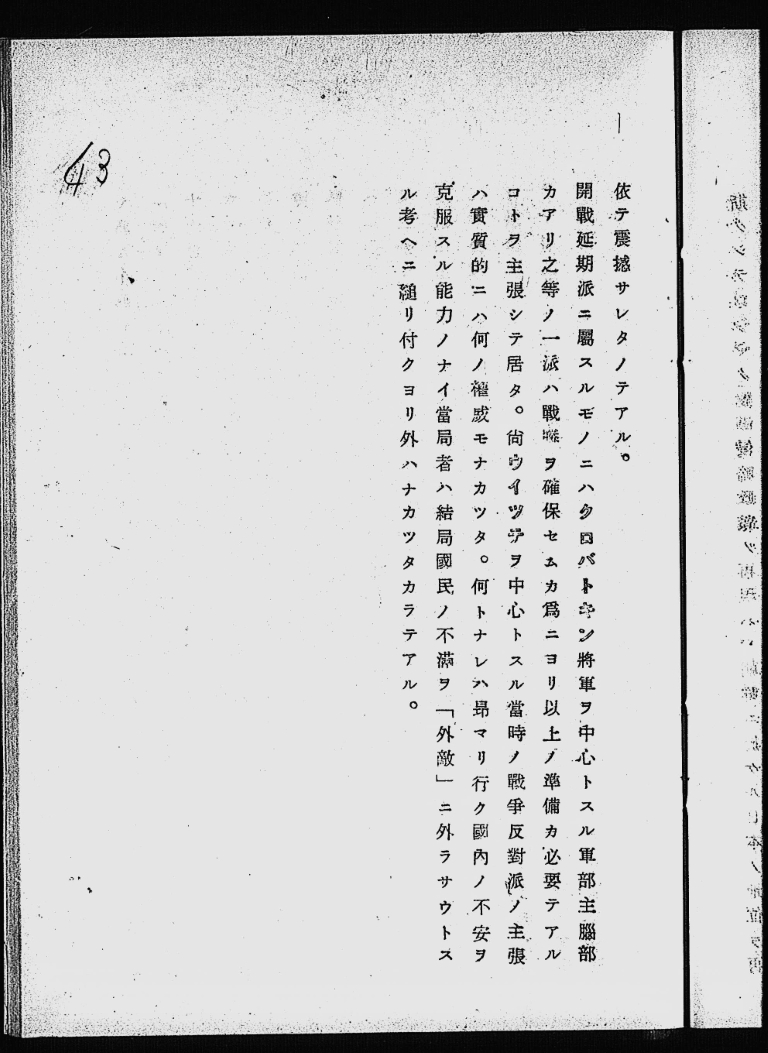 43
依テ震撼サレタノテアル。
開戰延期派ニ屬スルモノニハクロパトキン將軍ヲ中心トスル軍部主腦部
カアリ之等ノ一派ハ戰勝ヲ確保セムカ爲ニヨリ以上ノ準備カ必要テアル
コトヲ主張シテ居タ。尙ウイツテヲ中心トスル當時ノ戰爭反對派ノ主張
ハ實質的ニハ何ノ權威モナカツタ。何トナレハ昻マリ行ク國內ノ不安ヲ
克服スル能力ノナイ當局者ハ結局國民ノ不滿ヲ「外敵」ニ外ラサウトス
ル考ヘニ縋リ付クヨリ外ハナカツタカラテアル。